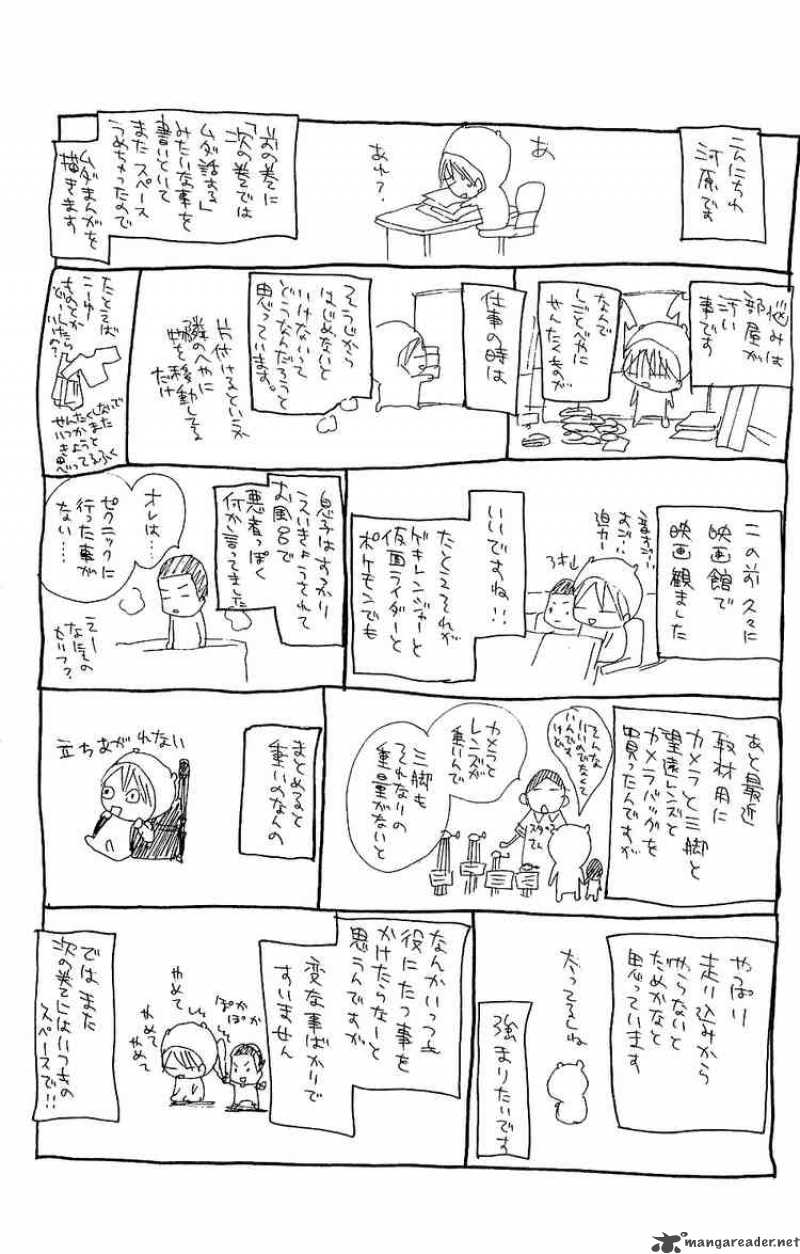 こんにちわ
河原です
あ
あれ?
前の巻に
「次の巻では
ムダ話ある」
みたいな事を
書いといて
またスペース
うめちゃったので
ムダまんがを
描きます
悩みは
部屋が
汚い
事です
なんで
しごとべやに
せんたくものが
仕事の時は
そうじから
はじめないと
いけないって
どうなんだろうと
思っています。
片付けるというか
隣のへやに
物を移動してる
だけ
たとえば
こーゆー
ものとか
どーしたら
いいの?
この前久々に
映画館で
映画観ました
音が‥
迫力‥
いいですね!!
たとえそれが
ゲキレンジャーと
仮面ライダーと
ポケモンでも
息子はすっかり
えいきょうされて
お風呂で
悪者っぽく
何か言ってました
オレは…
ピクニックに
行った事が
ない…
えー
なにその
せりふ?
あと最近
取材用に
カメラと三脚と
望遠レンズと
カメラバッグを
買ったんですが
そんな
いいのでなくて
いいんです
けど
カメラと
レンズが
重いんで
三脚も
それなりの
重量がないと
まとめると
重いのなんの
立ちあがれない
やっぱり
走り込みから
やらないと
だめかなと
思っています
太ってるしね
強まりたいです
なんかいつも
役にたつ事を
かけたらなーと
思うんですが
変な事ばかりで
すいません
ぽかぽか
やめて
やめて
やめて
ではまた
次の巻にはいつもの
スペースで!!
mangareader.net